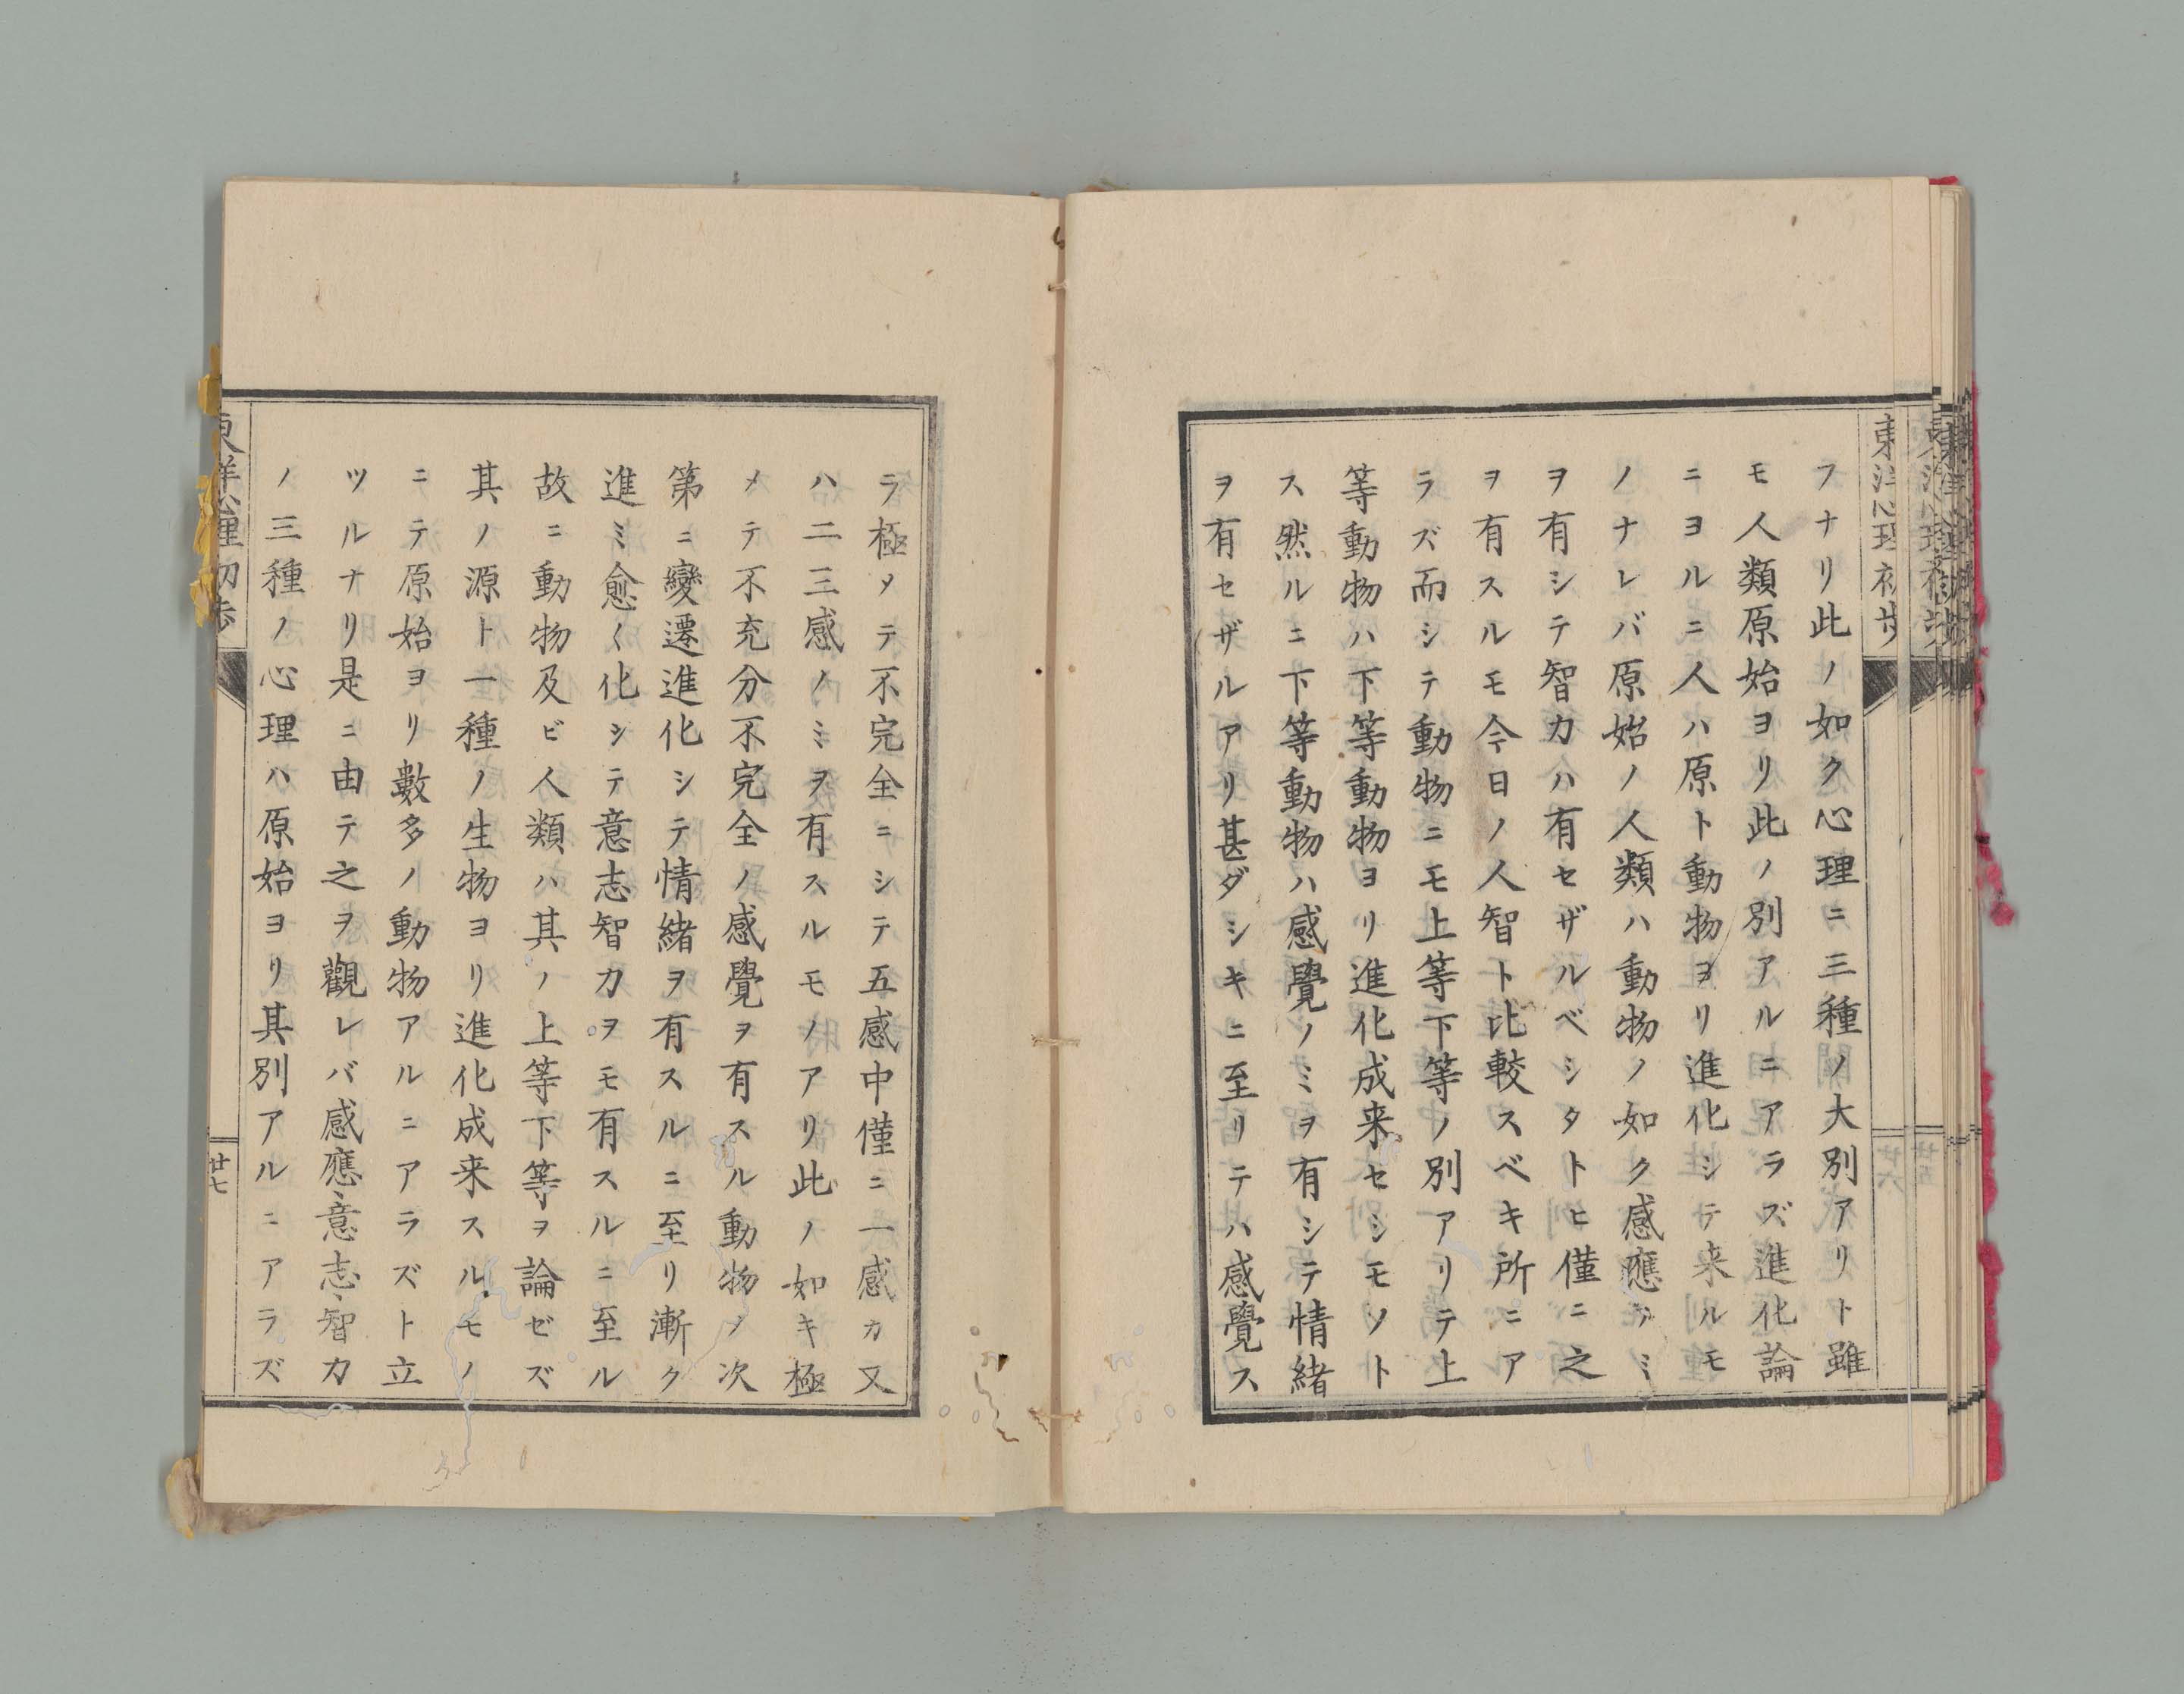 東洋心理初歩
フナリ此ノ如ク心理ニ三種ノ大別アリト雖
モ人類原始ヨリ此ノ別アルニアラズ進化論
ニヨルニ人ハ原ト動物ヨリ進化シテ来ルモ
ノナレバ原始ノ人類ハ動物ノ如ク感應ノミ
ヲ有シテ智力ハ有セザルベシタトヒ僅ニ之
ヲ有スルモ今日ノ人智ト比較スベキ所ニア
ラズ而シテ動物ニモ上等下等ノ別アリテ上
等動物ハ下等動物ヨリ進化成来セシモソト
ス然ルニ下等動物ハ感覺ノミヲ有シテ情緒
ヲ有セザルアリ甚ダシキニ至リテハ感覺ス
ラ極メテ不完全ニシテ五感中僅ニ一感カ又
ハ二三感ノミヲ有スルモノアリ此ノ如キ極
メテ不充分不完全ノ感覺ヲ有スル動物ノ次
第ニ變遷進化シテ情緒ヲ有スルニ至リ漸ク
進ミ愈〱化シテ意志智力ヲモ有スルニ至ル
故ニ動物及ビ人類ハ其ノ上等下等ヲ論ゼズ
其ノ源ト一種ノ生物ヨリ進化成来スルモノ
ニテ原始ヨリ數多ノ動物アルニアラズト立
ツルナリ是ニ由テ之ヲ觀レバ感應、意志、智力
ノ三種ノ心理ハ原始ヨリ其別アルニアラズ
東洋心理初歩
廿七